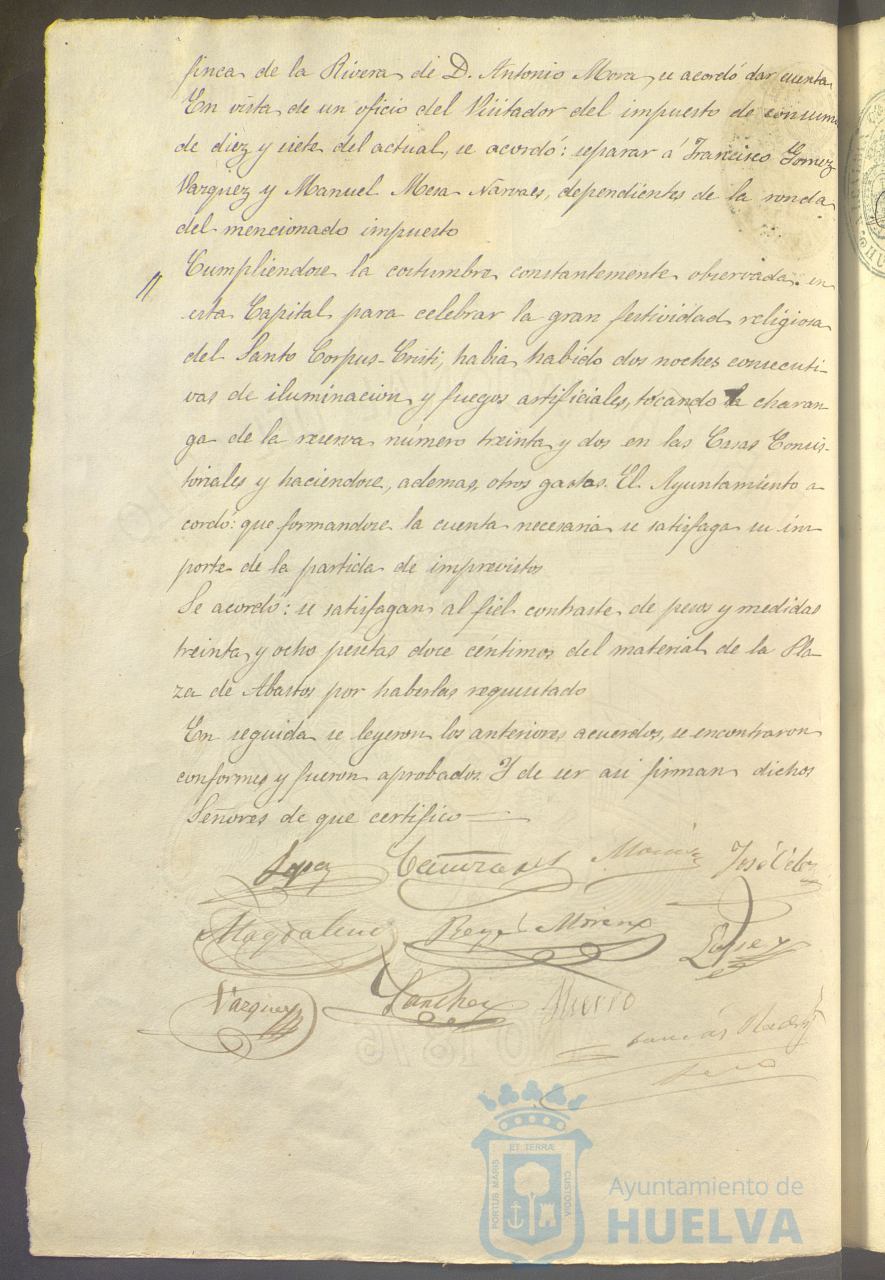 finca de la Rivera de D. Antonio Mora, se acordó dar cuenta
En vista de un oficio del Visitador del impuesto de consumo
de diez y siete del actual, se acordó: separar á Francisco Gomez
Vazquez y Manuel Mesa Narvaes, dependientes de la ronda
del mencionado impuesto
Cumpliendose la costumbre constantemente observada en
esta Capital para celebrar la gran festividad religiosa
del Santo Corpus-Cristi, habia habido dos noches consecuti-
vas de iluminacion y fuegos artificiales, tocando la charan-
ga de la reserva número treinta y dos en las Casas Consis-
toriales y haciendose, ademas, otros gastos. El Ayuntamiento a
cordó: que formandose la cuenta necesaria se satisfaga su im-
porte de la partida de imprevistos
Se acordó: se satisfagan al fiel contraste de pesos y medidas
treinta y ocho pesetas doce céntimos del material de la Pla-
za de Abastos por haberlas requisitado
En seguida se leyeron los anteriores acuerdos, se encontraron
conformes y fueron aprobados. Y de ser asi firman dichos
Señores de que certifico
Lopez José
Magdaleno Reyes Moreno Lopez
Vazquez Sanchez
NO 1876
ET TERRÆ
PORTUS MARIS CUSTODIA
Ayuntamiento de
HUELVA